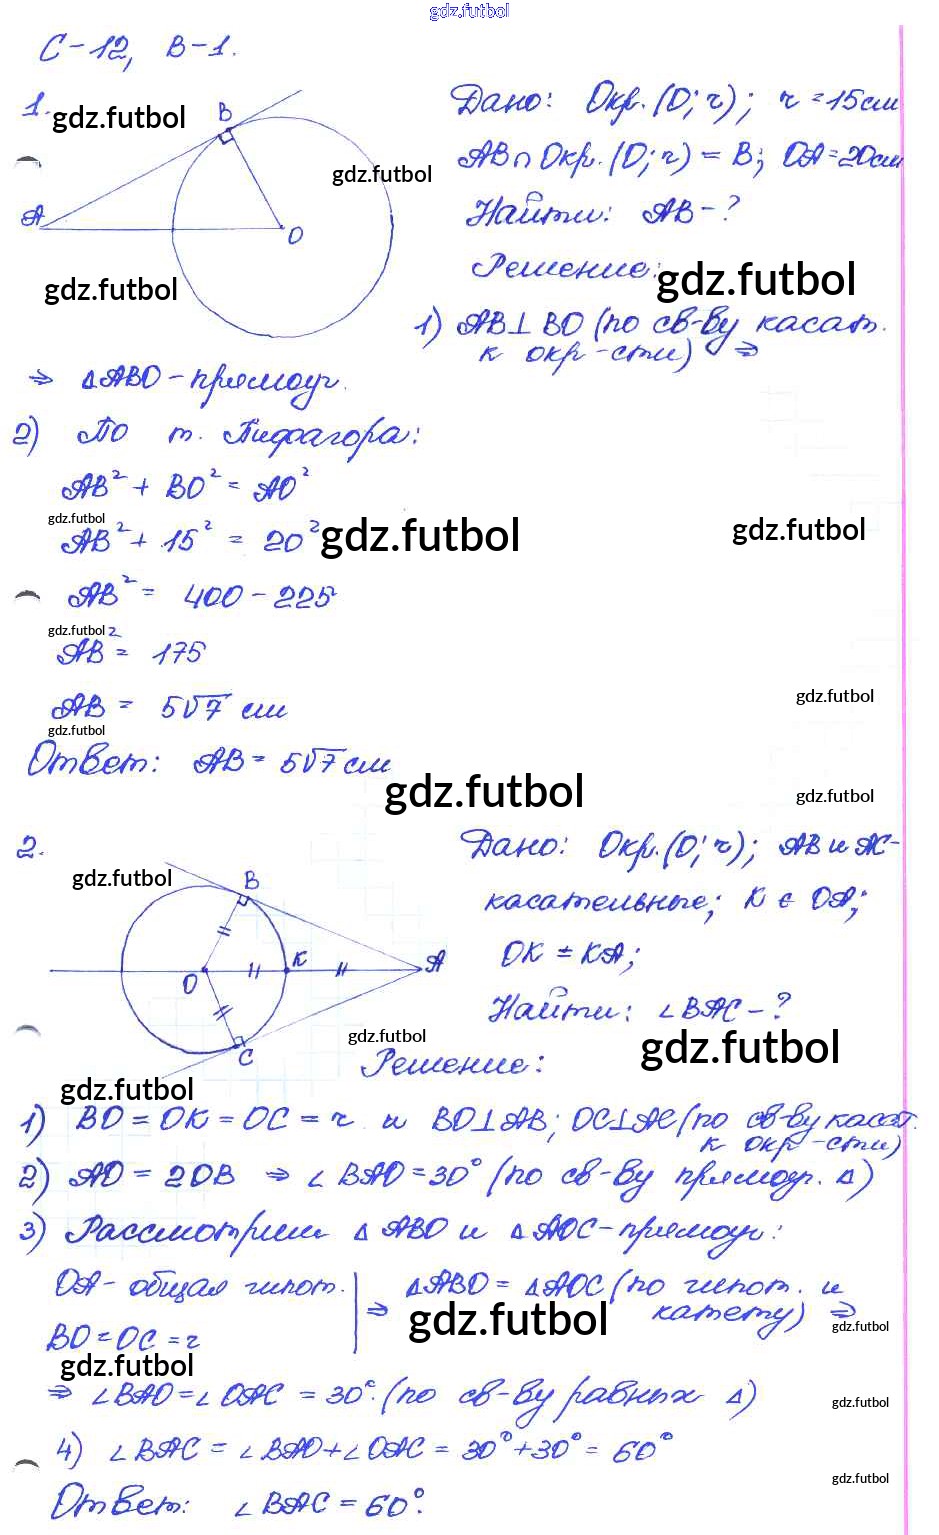 gdz.futbol
С-12, В-1.
1. gdz.futbol
B
Дано: Окр.(О; r); r = 15см
gdz.futbol
AB ∩ Окр.(О; r) = B; OA = 20см
A
O
Найти: AB - ?
gdz.futbol
Решение: gdz.futbol
1) AB ⊥ BO (по св-ву касат.
к окр-сти) ⇒
⇒ ΔABO - прямоуг.
2) По т. Пифагора:
AB² + BO² = AO²
gdz.futbol
AB² + 15² = 20² gdz.futbol
gdz.futbol
AB² = 400 - 225
gdz.futbol
AB² = 175
gdz.futbol
AB = 5√7 см
gdz.futbol
Ответ: AB = 5√7 см
gdz.futbol
gdz.futbol
2.
Дано: Окр.(О; r); AB и AC-
gdz.futbol
B
касательные; K ∈ OA;
K
A
O
OK = KA;
C
Найти: ∠BAC - ?
gdz.futbol
gdz.futbol
Решение:
gdz.futbol
1) BO = OK = OC = r и BO ⊥ AB; OC ⊥ AC (по св-ву касат.
к окр-сти)
2) AO = 2OB ⇒ ∠BAO = 30° (по св-ву прямоуг. Δ)
3) Рассмотрим ΔABO и ΔAOC - прямоуг:
OA - общая гипот. | ⇒ ΔABO = ΔAOC (по гипот. и
BO = OC = r gdz.futbol катету) ⇒
gdz.futbol
gdz.futbol
⇒ ∠BAO = ∠OAC = 30°. (по св-ву равных Δ)
gdz.futbol
4) ∠BAC = ∠BAO + ∠OAC = 30° + 30° = 60°
gdz.futbol
Ответ: ∠BAC = 60°.